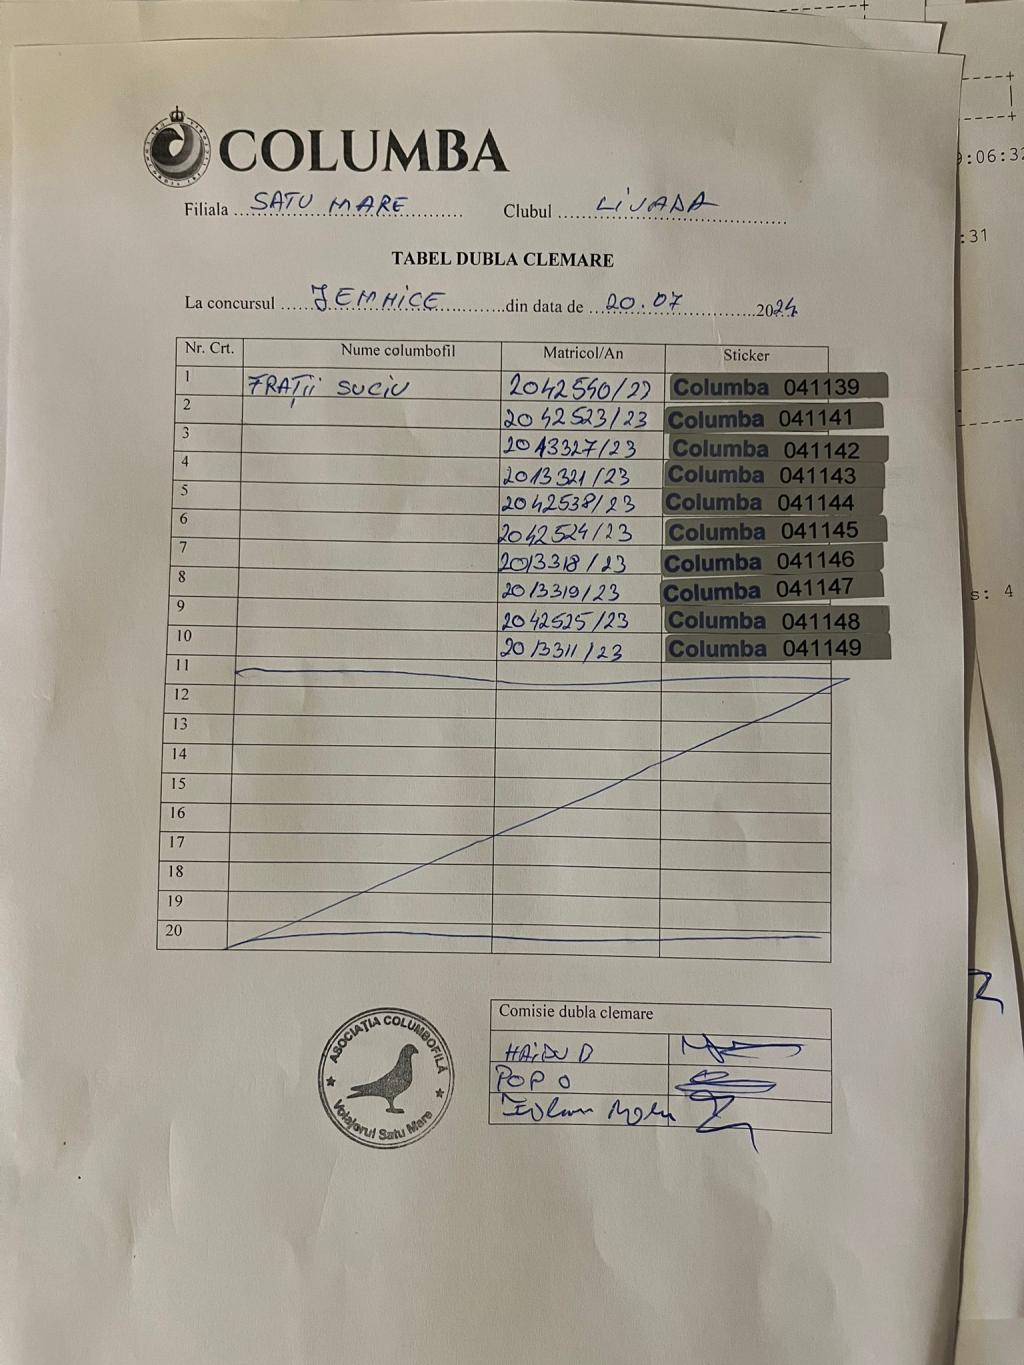 COLUMBA
Filiala SATU MARE Clubul LIVADA
TABEL DUBLA CLEMARE
La concursul JEMNICE din data de 20.07 2024
Nr. Crt. Nume columbofil Matricol/An Sticker
1 FRAȚII SUCIU 2042540/23 Columba 041139
2 2042523/23 Columba 041141
3 2013327/23 Columba 041142
4 2013321/23 Columba 041143
5 2042538/23 Columba 041144
6 2042524/23 Columba 041145
7 2013318/23 Columba 041146
8 2013319/23 Columba 041147
9 2042525/23 Columba 041148
10 2013311/23 Columba 041149
11
12
13
14
15
16
17
18
19
20
Comisie dubla clemare
HAIDU D
POP O
ASOCIAȚIA COLUMBOFILĂ
Volajorul Satu Mare
:06:32
:31
s: 4